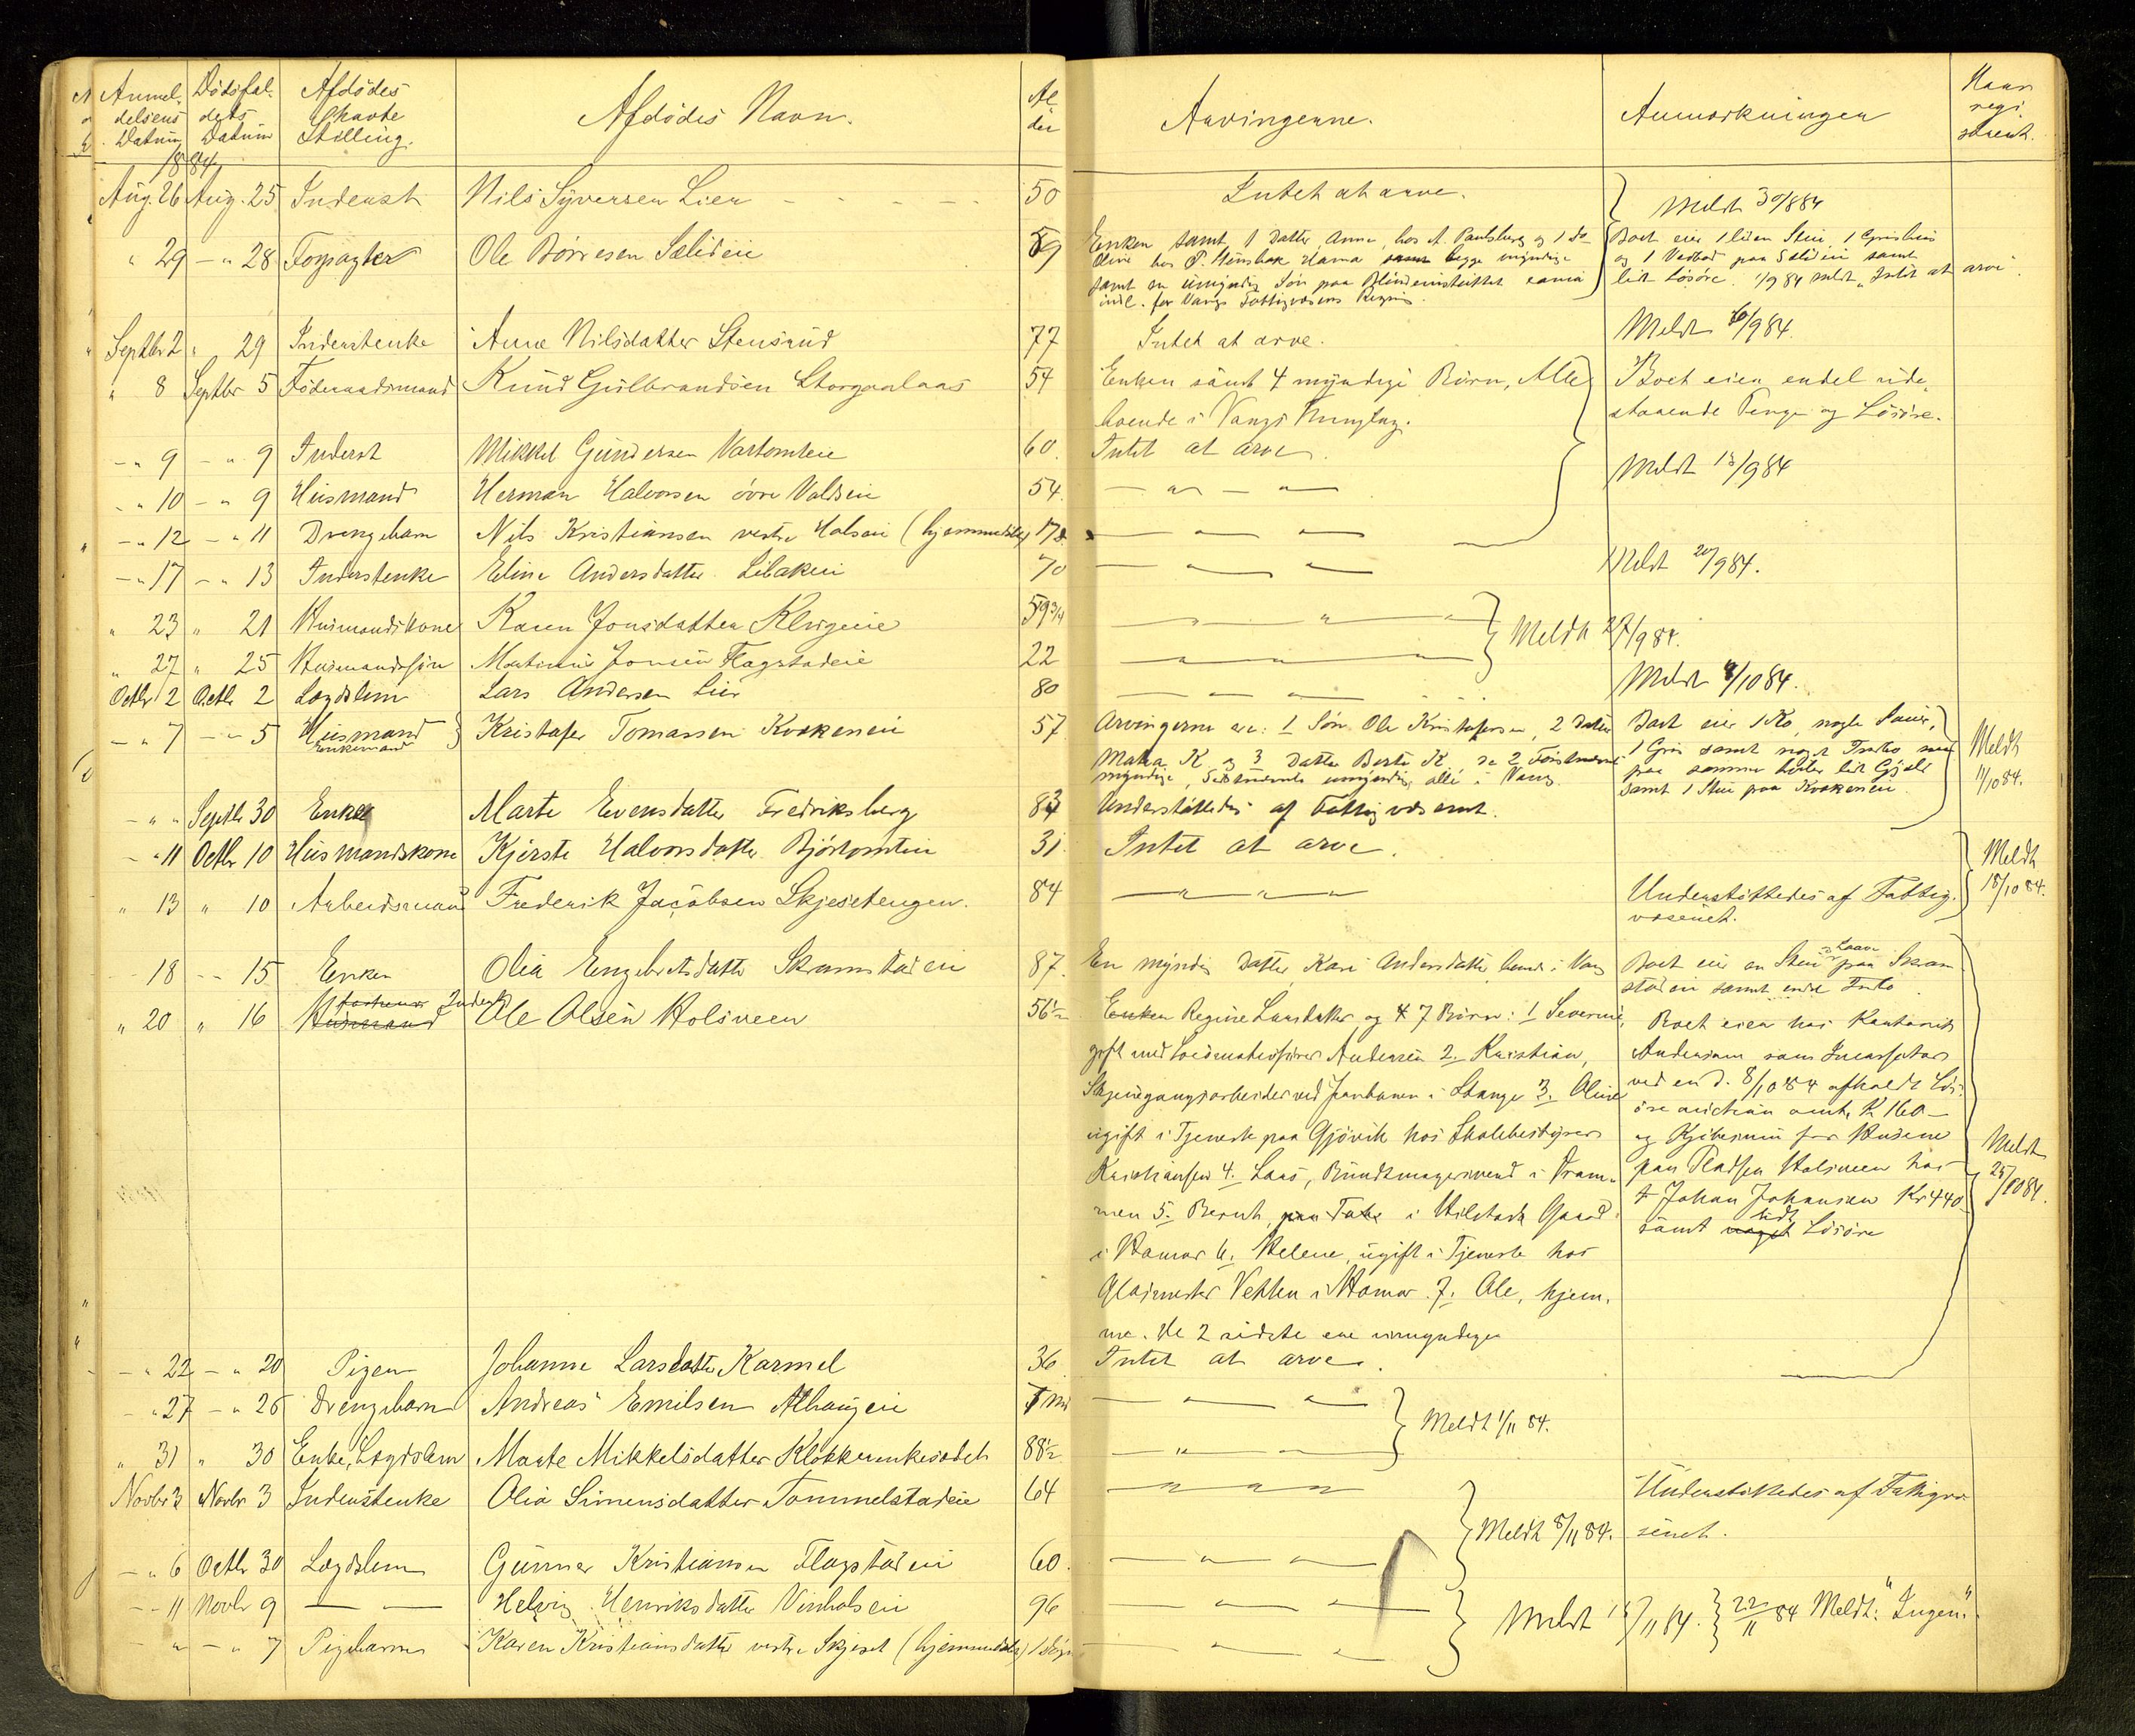 Anmel- Dödsfal- Afdödes
delsens dets havte Afdödes Navn. Al- Arvingerne. Anmærkninger
Datum Datum Stilling. der
1884
Aug. 26 Aug. 25 Inderst Nils Syversen Lien 50 Intet at arve. Meldt 30/8 84
" 29 - " 28 Forpagter Ole Börresen Sælideie 59 Enken samt 1 Datter, Anna, hos A. Paulsberg og 1 do Boet eier 1 liden Stue, 1 Grishus
Oline hos P. Hamar begge myndige og 1 Vedbod paa Sælideie samt
samt en umyndig Sön paa Blindeinstitutet lidt Lösöre. 1/9 84 meldt "Intet at arve".
indl. for Vangs Fattigvæsens Regning.
Septbr 2 " 29 Inderstenke Anne Nilsdatter Stensrud 77 Intet at arve. Meldt 6/9 84.
" 8 Septbr 5 Föderaadsmand Knud Gulbrandsen Storgaalaas 54 Enken samt 4 myndige Börn, Alle Boet eier endel ude-
boende i Vangs Thinglag. staaende Penge og Lösöre.
- " 9 - " 9 Inderst Mikkel Gundersen 60. Intet at arve. Meldt 13/9 84
- " 10 - " 9 Husmand Herman Halvorsen övre Valdeie 54. - " - " -
- " 12 - " 11 Drengebarn Nils Kristiansen vestre (hjemmedöbt) 17 d. - " - " -
- " 17 - " 13 Inderstenke Eline Andersdatter Libakeie 70 - " - " - Meldt 20/9 84.
" 23 " 21 Husmandskone Karen Jonsdatter 59 3/4 - " - Meldt 27/9 84.
" 27 " 25 Husmandssön Martinius Jonsen Flagstadeie 22 - " - " -
Octbr 2 Octbr 2 Lægdslem Lars Andersen Lier 80 - " - " - Meldt 4/10 84.
- " 7 - " 5 Husmand Kristofer Tomassen 57. Arvingerne ere: 1 Sön Ole Kristofersen, 2 Datter Boet eier 1 Ko, nogle Sauer,
Enkemand Mathea K og 3 Datter Berte K, de 2 Förstnævnte 1 Gris samt noget Indbo men Meldt
myndige, Sidstnævnte umyndig, alle i Vang. paa samme hviler lidt Gjæld 11/10 84.
samt 1 Stue paa
- " " Septbr 30 Enke Marte Evensdatter Fredriksberg 83 Understöttedes af Fattigvæsenet.
- " 11 Octbr 10 Husmandskone Kjerste Halvorsdatter 31 Intet at arve. Meldt
" 13 " 10 Arbeidsmand Frederik Jacobsen Skjesetengen. 84 - " - " - Understöttedes af Fattig- 18/10 84.
væsenet.
- 18 - - 15 Enken Olia Engebretsdatter Skramstadeie 87. En myndig Datter, Kari Andersdatter, boende i Vang Boet eier en Stue og Laave paa Skram-
stadeie samt endel Indbo.
" 20 " 16 Husmand Inderst Ole Olsen Holsveen 56 1/2 Enken Regine Larsdatter og 7 Börn: 1 Severine, Boet eier hos Kautorist
gift med Locomotivförer Andersen 2. Kristian, Andersen som Incassator
Skjinegangsarbeider ved Jernbanen i Stange 3. Oline ved en d. 8/10 84 afholdt Lös-
ugift i Tjeneste paa Gjövik hos Skolebestyrer öre auction omtr. K 160 -
Kristiansen 4. Lars, Bundtmagersvend i Dram- og Kjöbesum for Husene Meldt
men 5. Bernt, i Gaard paa Pladsen Holsveen hos 25/10 84.
i Hamar 6. Helene, ugift i Tjeneste hos Johan Johansen Kr 440
Glasmester Vethe i Hamar. 7. Ole, hjem- samt noget lidt Lösöre
me. De 2 sidste ere umyndige
- " 22 - " 20 Pigen Johanne Larsdatter Karmel 36 Intet at arve.
- " 27 - " 26 Drengebarn Andreas Emilsen 1 Md - " - " - Meldt 1/11 84.
" 31 " 30 Enke, Lægdslem Marte Mikkelsdatter Klokkerenkesædet 88 1/2 - " -
Novbr 3 Novbr 3 Inderstenke Olia Simensdatter Tommelstadeie 64 - " - " - Understöttedes af Fattigvæ-
Meldt 8/11 84. senet.
- " 6 Octbr 30 Lægdslem Gunner Kristiansen Flagstadeie 60. - " - " -
- " 11 Novbr 9 - - Helvig Henriksdatter 96 - " - " - Meldt 15/11 84. 22/11 84 Meldt: "Ingen".
" - " 7 Pigebarn Karen Kristiansdatter vestre Skjeset (hjemmedöbt) 1 Dögn - " - " -